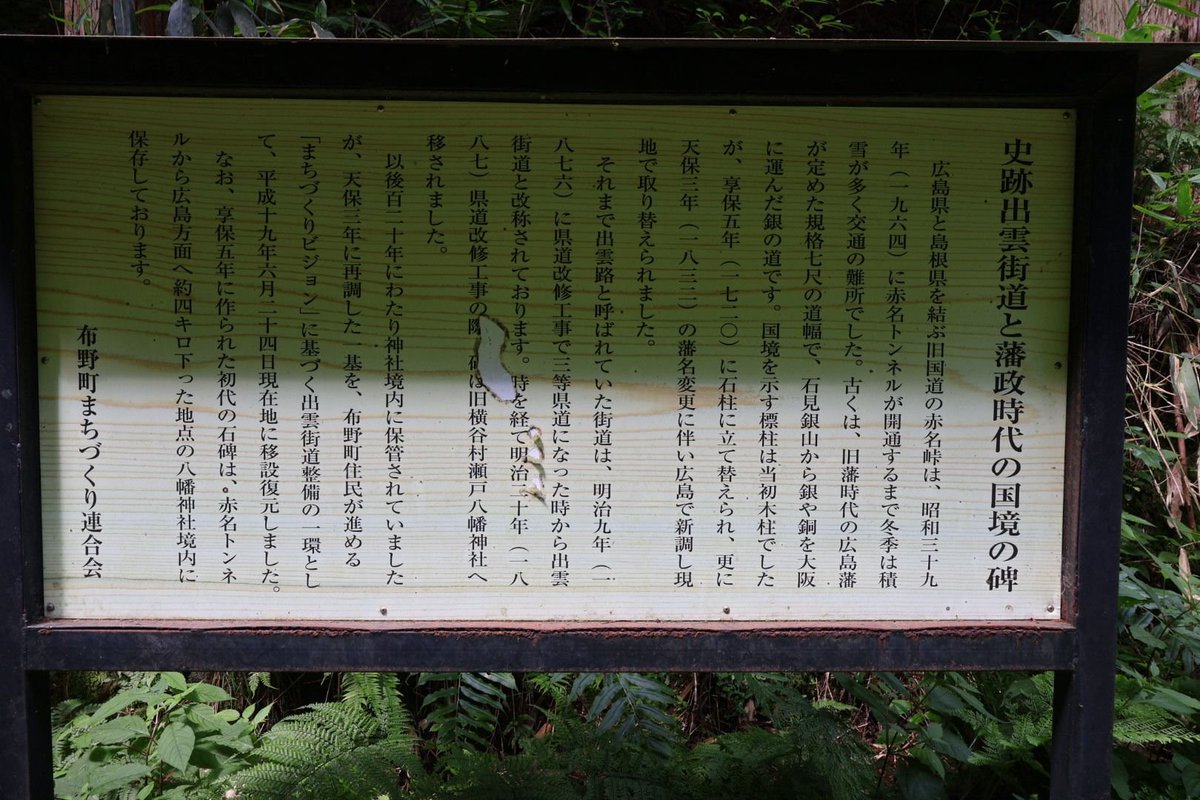 史跡出雲街道と藩政時代の国境の碑
広島県と島根県を結ぶ旧国道の赤名峠は、昭和三十九
年（一九六四）に赤名トンネルが開通するまで冬季は積
雪が多く交通の難所でした。古くは、旧藩時代の広島藩
が定めた規格七尺の道幅で、石見銀山から銀や銅を大阪
に運んだ銀の道です。国境を示す標柱は当初木柱でした
が、享保五年（一七二〇）に石柱に立て替えられ、更に
天保三年（一八三二）の藩名変更に伴い広島で新調し現
地で取り替えられました。
それまで出雲路と呼ばれていた街道は、明治九年（一
八七六）に県道改修工事で三等県道になった時から出雲
街道と改称されております。時を経て明治二十年（一八
八七）県道改修工事の際 碑は旧横谷村瀬戸八幡神社へ
移されました。
以後百二十年にわたり神社境内に保管されていました
が、天保三年に再調した一基を、布野町住民が進める
「まちづくりビジョン」に基づく出雲街道整備の一環とし
て、平成十九年六月二十四日現在地に移設復元しました。
なお、享保五年に作られた初代の石碑は、赤名トンネ
ルから広島方面へ約四キロ下った地点の八幡神社境内に
保存しております。
布野町まちづくり連合会